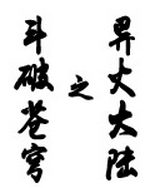 斗破苍穹
之
异火大陆